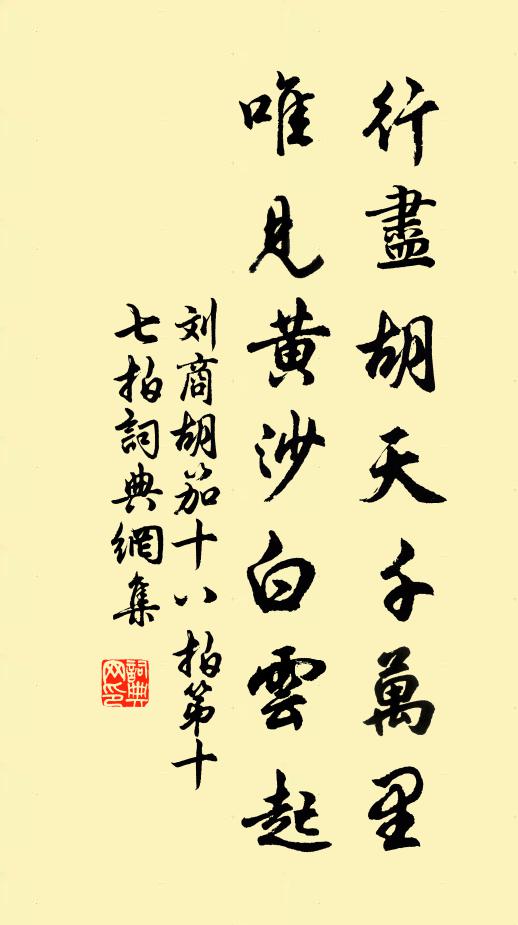 行盡胡天千萬里
唯見黃沙白雲起
刘商胡笳十八拍第十
七拍詞典網集
詞典
网印